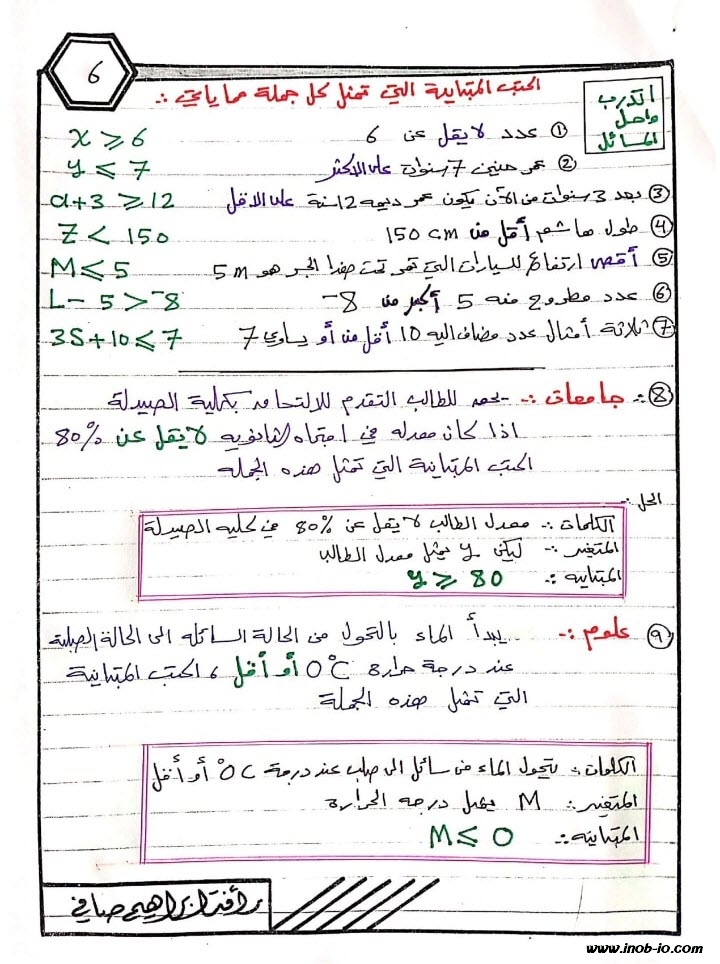 6
اكتب المتباينة التي تمثل كل جملة مما يأتي :.
التدرب
واحل
المسائل
① عدد لا يقل عن 6 x ⩾ 6
② عمر حنين 7 سنوات على الاكثر y ⩽ 7
③ بعد 3 سنوات من الآن يكون عمر ديمه 12 سنة على الاقل d+3 ⩾ 12
④ طول هاشم أقل من 150 cm Z < 150
⑤ أقصى ارتفاع للسيارات التي تمر تحت هذا الجسر هو 5 m M ⩽ 5
⑥ عدد مطروح منه 5 أكبر من 8- L - 5 > -8
⑦ ثلاثة أمثال عدد مضاف اليه 10 أقل من أو يساوي 7 3S + 10 ⩽ 7
⑧ :. جامعات :. يحق للطالب التقدم للالتحاق بكلية الصيدلة
اذا كان معدله في امتحان الثانويه لا يقل عن 80%
اكتب المتباينة التي تمثل هذه الجمله
الحل :.
الكلمات :. معدل الطالب لا يقل عن 80% في كليه الصيدلة
المتغير :. ليكن y يمثل معدل الطالب
المتباينه :. y ⩾ 80
⑨ علوم :. يبدأ الماء بالتحول من الحالة السائله الى الحالة الصلبة
عند درجة حرارة 0°C أو أقل ، اكتب المتباينة
التي تمثل هذه الجملة
الكلمات :. يتحول الماء من سائل الى صلب عند درجة 0°C أو أقل
المتغير :. M يمثل درجه الحرارة
المتباينه :. M ⩽ 0
رأفت ابراهيم صافي
www.inob-jo.com